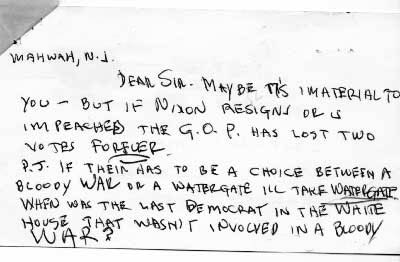 MAHWAH, N.J.
DEAR SIR. MAYBE ITS IMATERIAL TO
YOU - BUT IF NIXON RESIGNS OR IS
IMPEACHED THE G.O.P. HAS LOST TWO
VOTES FOREVER.
P.S. IF THEIR HAS TO BE A CHOICE BETWEEN A
BLOODY WAR OR A WATERGATE ILL TAKE WATERGATE
WHEN WAS THE LAST DEMOCRAT IN THE WHITE
HOUSE THAT WASN'T INVOLVED IN A BLOODY
WAR?